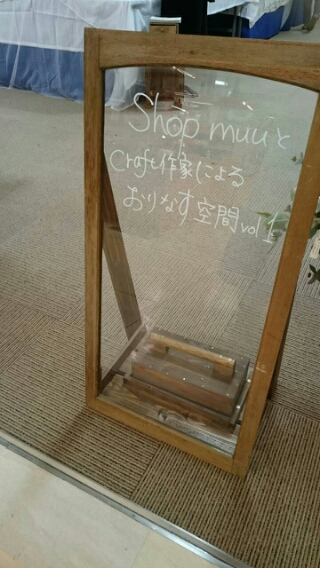 Shop muuと
Craft作家による
おりなす空間vol 1